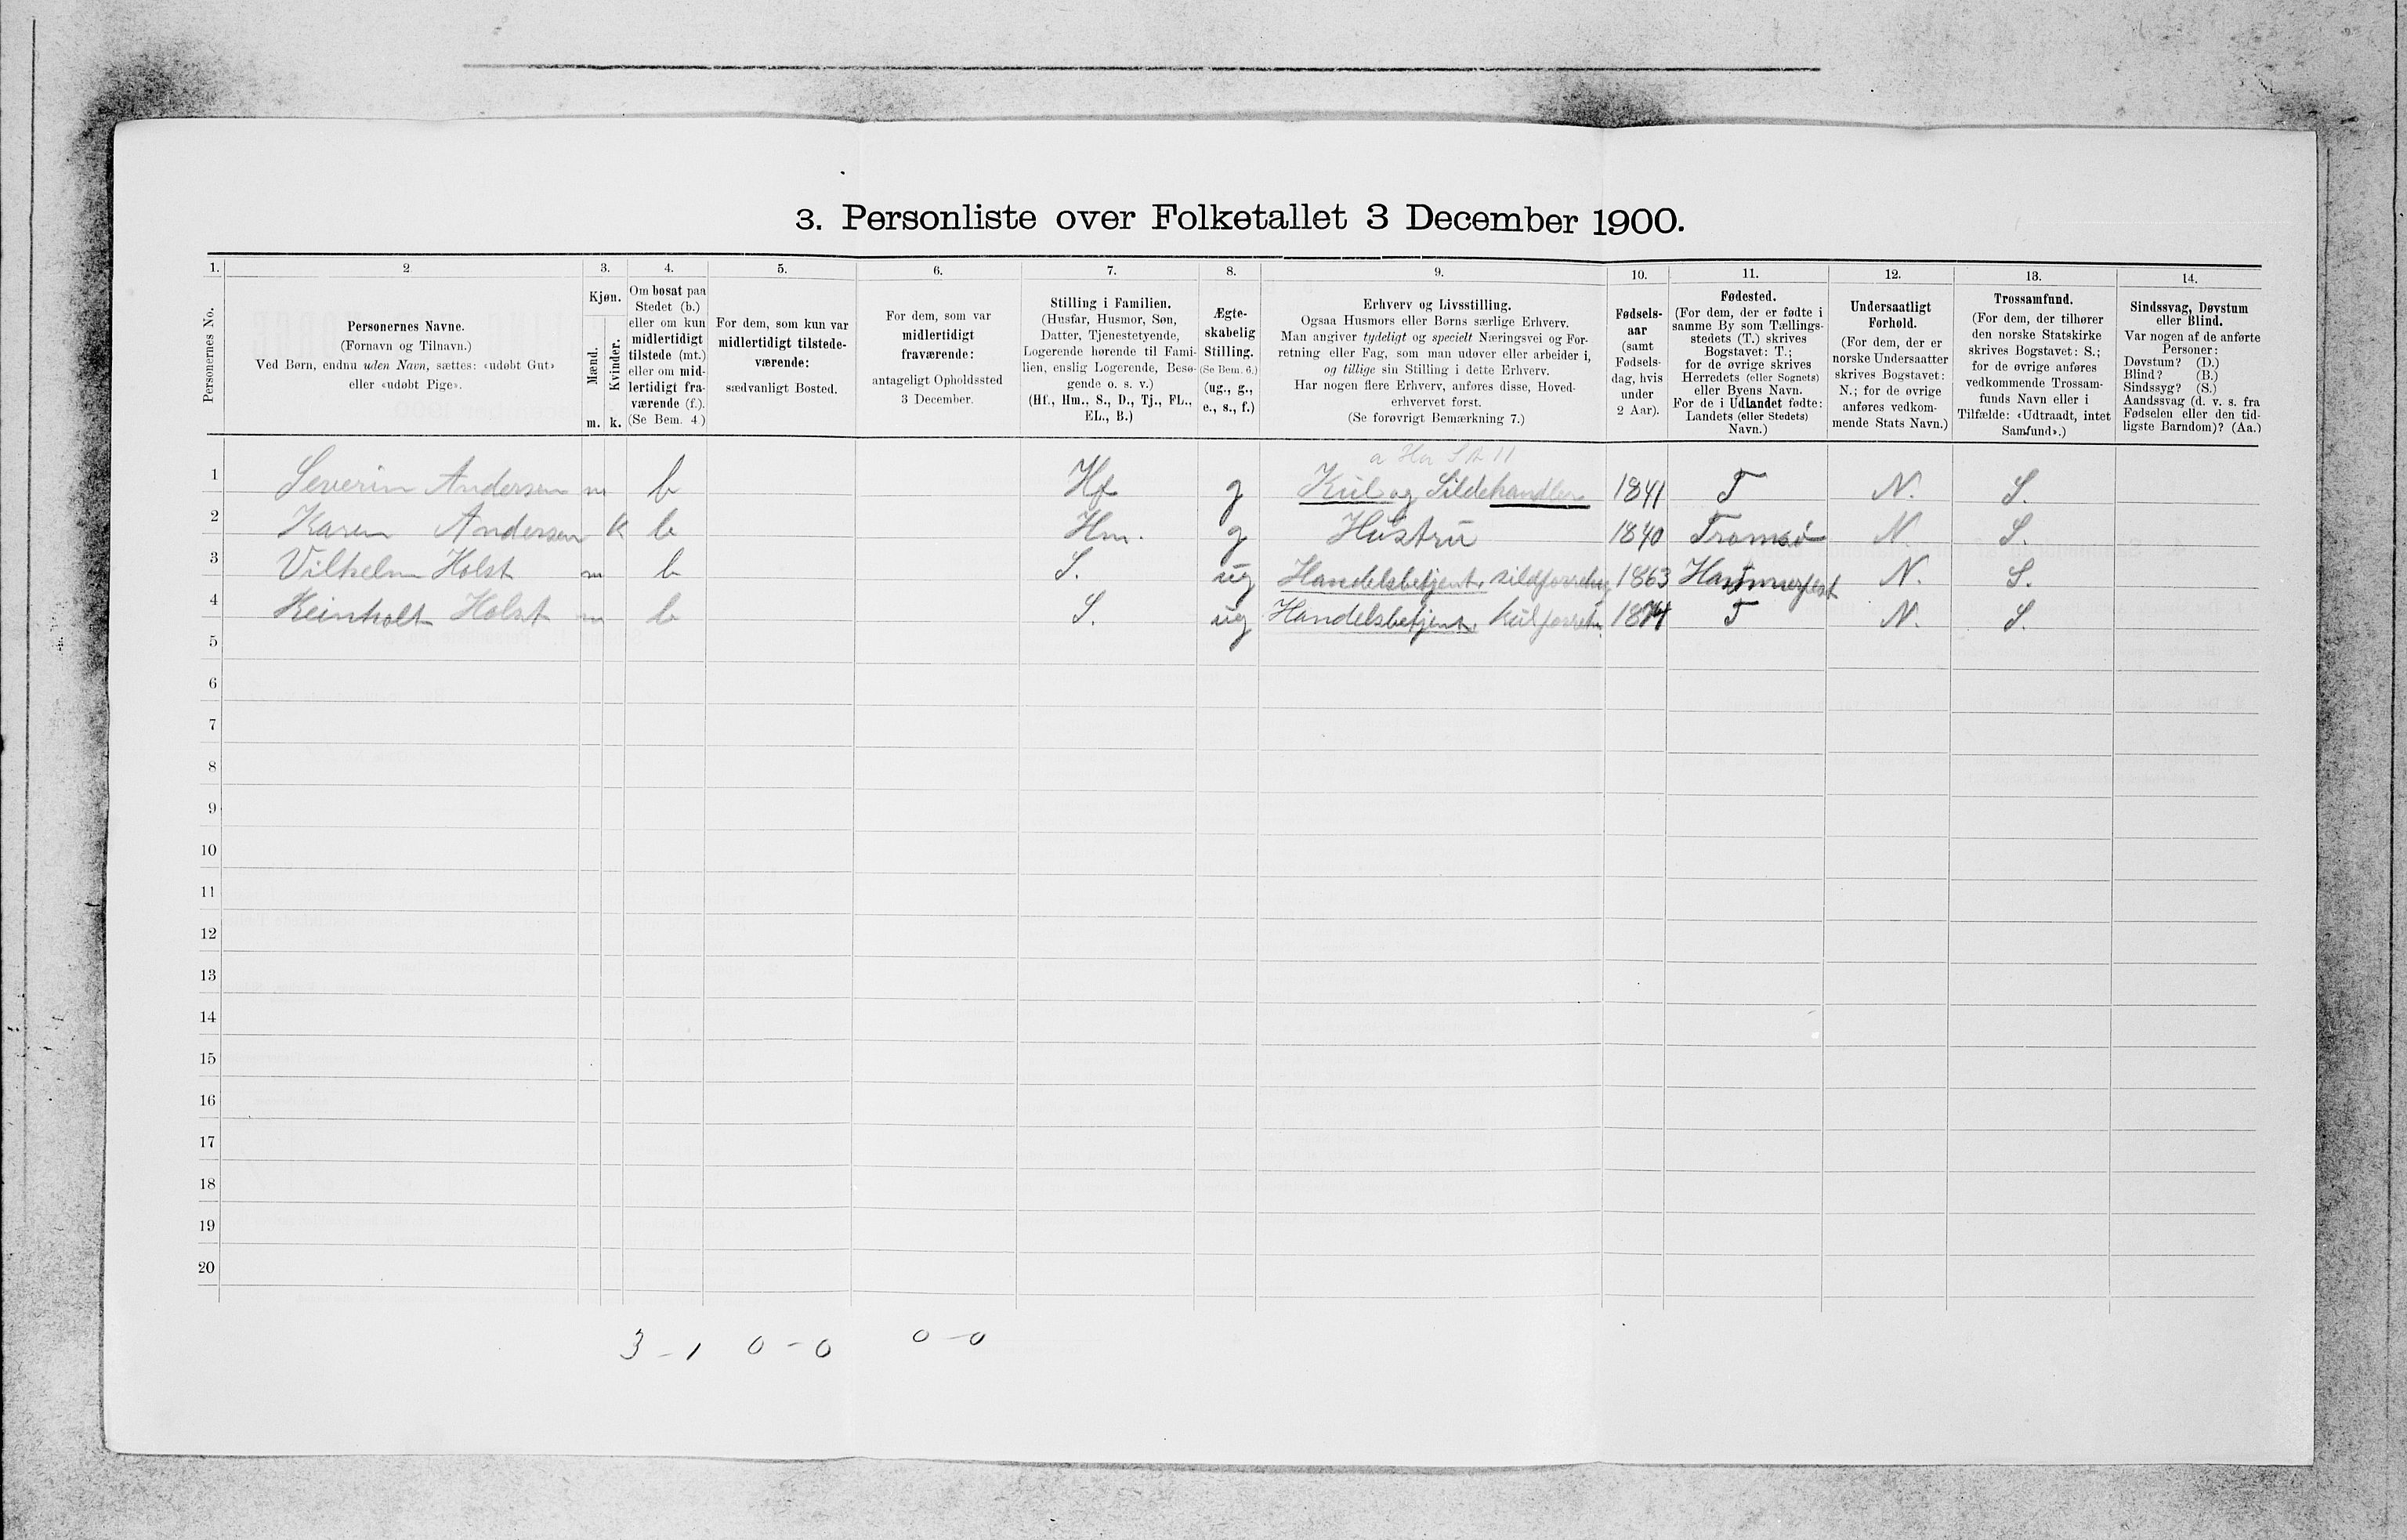 3. Personliste over Folketallet 3 December 1900.
1. 2 3. 4. 5. 6. 7. 8. 9. 10. 11. 12. 13. 14.
Personernes No.
Personernes Navne.
(Fornavn og Tilnavn.)
Ved Børn, endnu uden Navn, sættes: «udøbt Gut»
eller «udøbt Pige».
Kjøn.
Mænd.
Kvinder.
m. k.
Om bosat paa
Stedet (b.)
eller om kun
midlertidigt
tilstede (mt.)
eller om mid-
lertidigt fra-
værende (f.).
(Se Bem. 4.)
For dem, som kun var
midlertidigt tilstede-
værende:
sædvanligt Bosted.
For dem, som var
midlertidigt
fraværende:
antageligt Opholdssted
3 December.
Stilling i Familien.
(Husfar, Husmor, Søn,
Datter, Tjenestetyende,
Logerende hørende til Fami-
lien, enslig Logerende, Besø-
gende o. s. v.)
(Hf., Hm., S., D., Tj., FL.,
EL., B.)
Ægte-
skabelig
Stilling.
(Se Bem. 6.)
(ug., g.,
e., s., f.)
Erhverv og Livsstilling.
Ogsaa Husmors eller Børns særlige Erhverv.
Man angiver tydeligt og specielt Næringsvei og For-
retning eller Fag, som man udøver eller arbeider i,
og tillige sin Stilling i dette Erhverv.
Har nogen flere Erhverv, anføres disse, Hoved-
erhvervet først.
(Se forøvrigt Bemærkning 7.)
Fødsels-
aar
(samt
Fødsels-
dag, hvis
under
2 Aar).
Fødested.
(For dem, der er fødte i
samme By som Tællings-
stedets (T.) skrives
Bogstavet: T.;
for de øvrige skrives
Herredets (eller Sognets)
eller Byens Navn.
For de i Udlandet fødte:
Landets (eller Stedets)
Navn.)
Undersaatligt
Forhold.
(For dem, der er
norske Undersaatter
skrives Bogstavet:
N.; for de øvrige
anføres vedkom-
mende Stats Navn.)
Trossamfund.
(For dem, der tilhører
den norske Statskirke
skrives Bogstavet: S.;
for de øvrige anføres
vedkommende Trossam-
funds Navn eller i
Tilfælde: «Udtraadt, intet
Samfund».)
Sindssvag, Døvstum
eller Blind.
Var nogen af de anførte
Personer:
Døvstum? (D.)
Blind? (B.)
Sindssyg? (S.)
Aandssvag (d. v. s. fra
Fødselen eller den tid-
ligste Barndom)? (Aa.)
1 Severin Andersen m b Hf g Kul og Sildehandler 1841 T N. S.
2 Karen Andersen K b Hm. g Hustru 1840 Tromsø N. S.
3 Vilhelm Holst m b S. ug Handelsbetjent, sildforretng 1863 Hammerfest N. S.
4 Reinholt Holst m b S. ug Handelsbetjent, Kulforretn. 1874 T N. S.
5
6
7
8
9
10
11
12
13
14
15
16
17
18
19
20
3 - 1 0 - 0 0 - 0